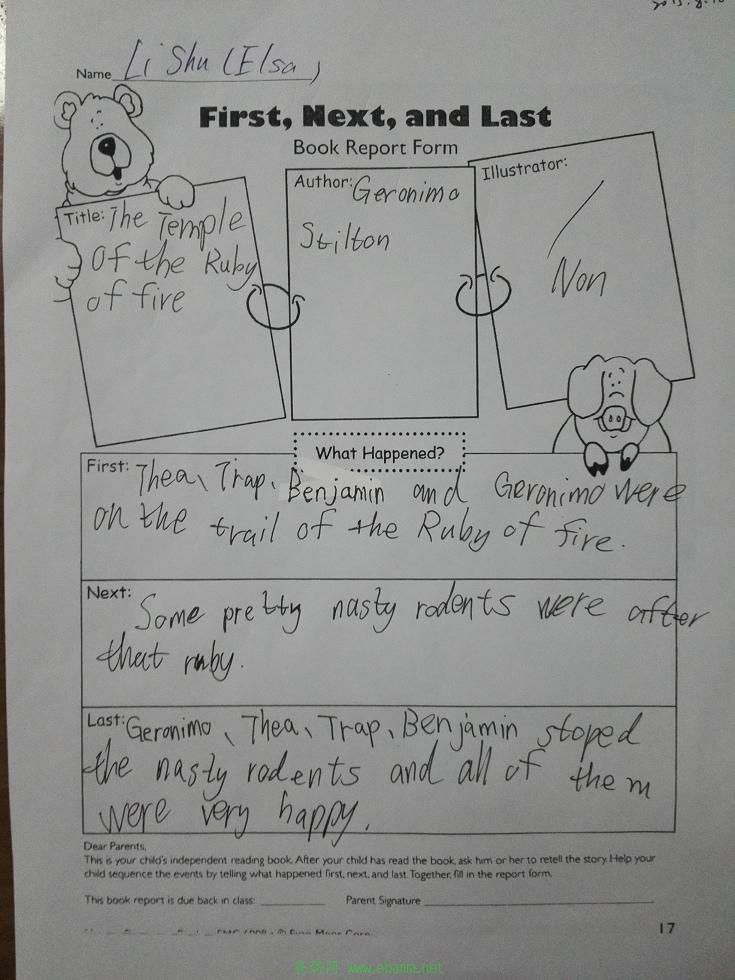 Name Li Shu (Elsa)
First, Next, and Last
Book Report Form
Title: The Temple
Of the Ruby
of fire
Author: Geronimo
Stilton
Illustrator:
Non
What Happened?
First: Thea、Trap、Benjamin and Geronimo were
on the trail of the Ruby of fire.
Next: Some pretty nasty rodents were after
that ruby.
Last: Geronimo、Thea、Trap、Benjamin stoped
the nasty rodents and all of them
were very happy.
Dear Parents,
This is your child's independent reading book. After your child has read the book, ask him or her to retell the story. Help your
child sequence the events by telling what happened first, next, and last. Together, fill in the report form.
This book report is due back in class: Parent Signature
17
www.ebama.net